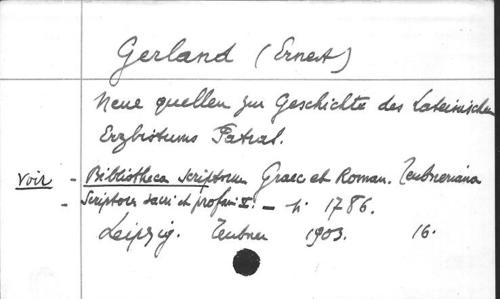 Gerland (Ernest)
Neue quellen zur Geschichte des Lateinischen
Erzbistums Patras.
Voir - Bibliotheca Scriptorum Graec et Roman. Teubneriana
- Scriptores sacri et profani V. — n: 1786.
Leipzig. Teubner 1903. 16.